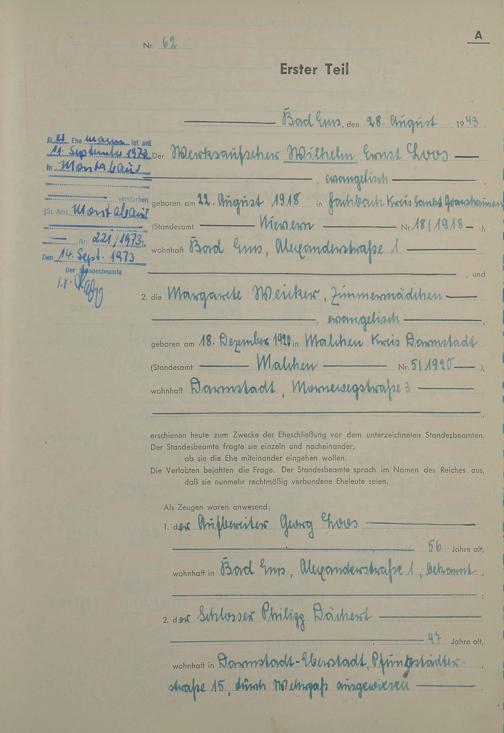 A
Nr. 62
Erster Teil
Bad Ems, den 28. August 1943
Der Werksaufseher Wilhelm Ernst Loos
, evangelisch
geboren am 22. August 1918 in Fachbach Kreis Sankt Goarshausen
(Standesamt Nievern Nr. 18/1918 ),
wohnhaft Bad Ems, Alexanderstraße 1
, und
2. die Margarete Weicker, Zimmermädchen
, evangelisch
geboren am 18. Dezember 1920 in Malchen Kreis Darmstadt
(Standesamt Malchen Nr. 5/1920 ),
wohnhaft Darmstadt, Mornewegstraße 3
erschienen heute zum Zwecke der Eheschließung vor dem unterzeichneten Standesbeamten.
Der Standesbeamte fragte sie einzeln und nacheinander,
ob sie die Ehe miteinander eingehen wollen.
Die Verlobten bejahten die Frage. Der Standesbeamte sprach im Namen des Reiches aus,
daß sie nunmehr rechtmäßig verbundene Eheleute seien.
Als Zeugen waren anwesend:
1. der Aufbereiter Georg Loos
56 Jahre alt,
wohnhaft in Bad Ems, Alexanderstraße 1, bekannt
;
2. der Schlosser Philipp Dächert
47 Jahre alt,
wohnhaft in Darmstadt-Eberstadt, Pfungstädter-
straße 15, durch Wehrpaß ausgewiesen
Ehemann ist am
11. September 1973
in Montabaur
verstorben
(St. Amt Montabaur
Nr. 221/1973)
Den 14. Sept. 1973
Der Standesbeamte
I.V.